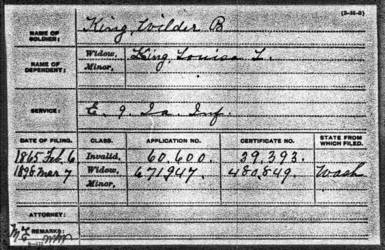 (3-36-2)
NAME OF SOLDIER: King, Wilder B
NAME OF DEPENDENT: Widow, King, Louisa L.
Minor,
SERVICE: E. 9 Ia. Inf.
DATE OF FILING. CLASS. APPLICATION NO. CERTIFICATE NO. STATE FROM WHICH FILED.
1865 Feb. 6 Invalid, 60,600. 39,393.
1898 Mar 7 Widow, 671947. 480,849. Wash
Minor,
ATTORNEY:
REMARKS: